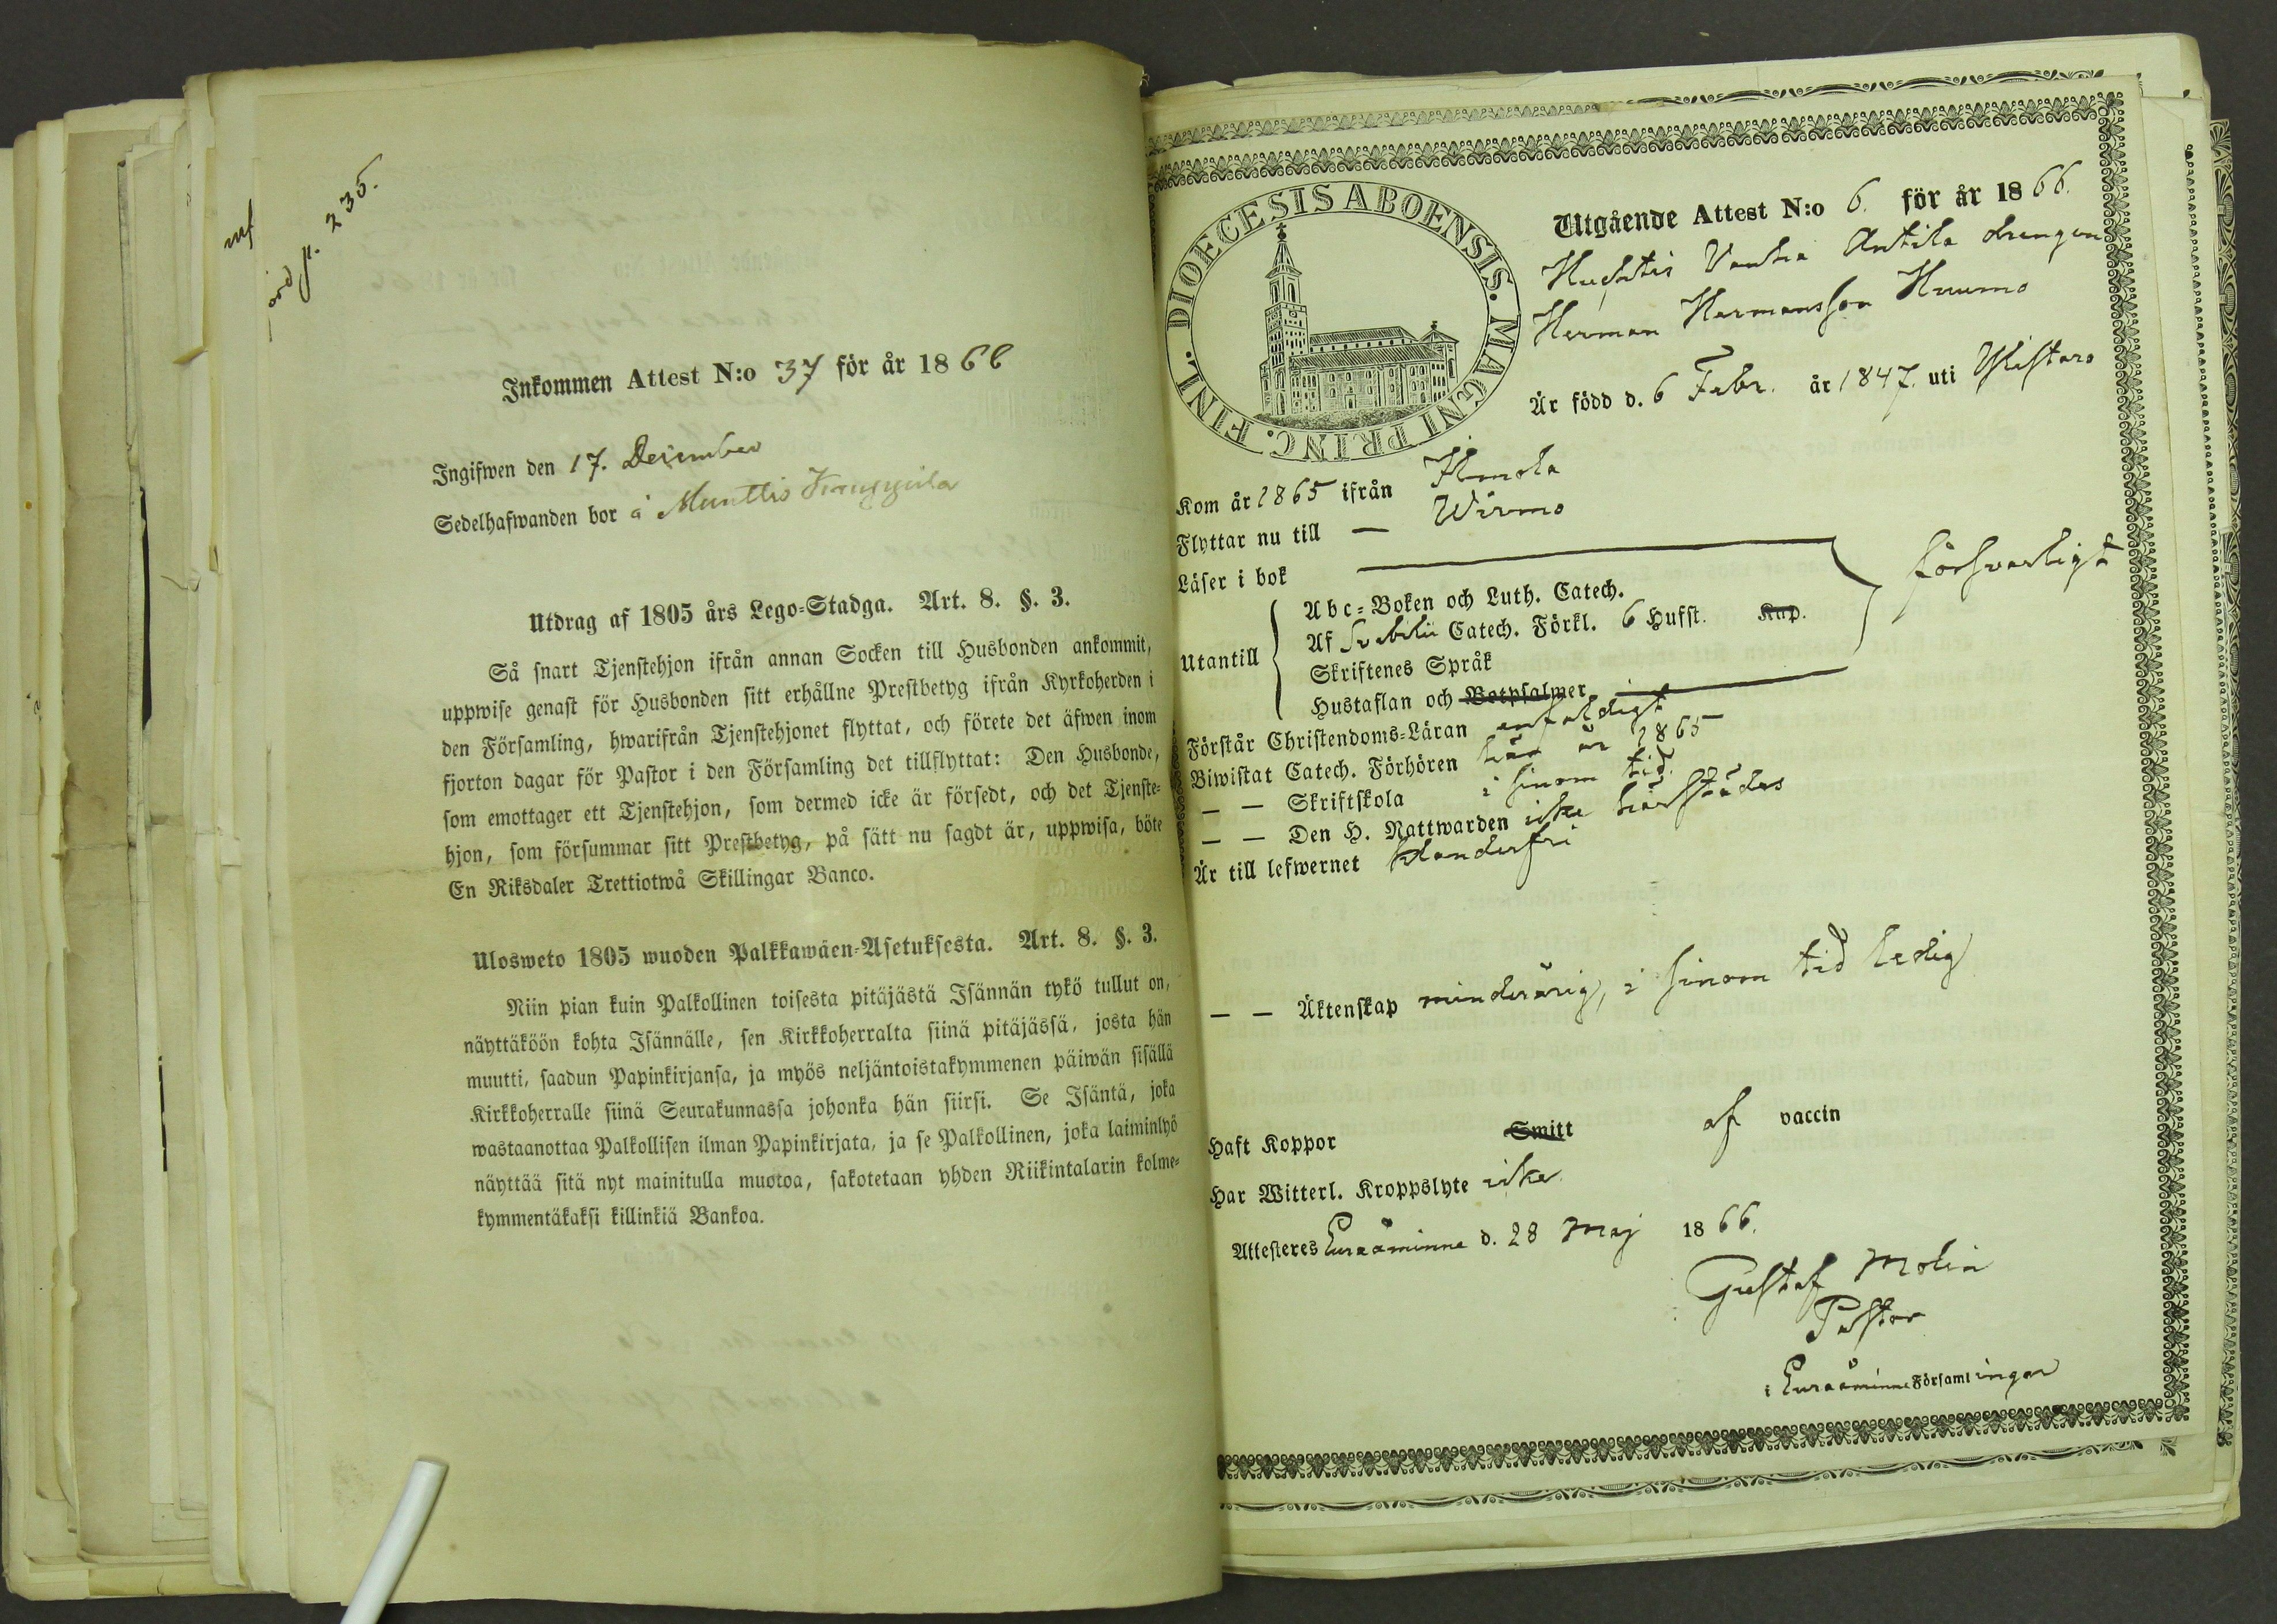 inf
införd p. 235.
Inkommen Attest N:o 37 för år 1866
Ingifwen den 17. December
Sedelhafwanden bor å Munttis
Utdrag af 1805 års Lego-Stadga. Art. 8. §. 3.
Så snart Tjenstehjon ifrån annan Socken till Husbonden ankommit,
uppwise genast för Husbonden sitt erhållne Prestbetyg ifrån Kyrkoherden i
den Församling, hwarifrån Tjenstehjonet flyttat, och förete det äfwen inom
fjorton dagar för Pastor i den Församling det tillflyttat: Den Husbonde,
som emottager ett Tjenstehjon, som dermed icke är försedt, och det Tjenste-
hjon, som försummar sitt Prestbetyg, på sätt nu sagdt är, uppwisa, böte
En Riksdaler Trettiotwå Skillingar Banco.
Ulosweto 1805 wuoden Palkkawäen-Asetuksesta. Art. 8. §. 3.
Niin pian kuin Palkollinen toisesta pitäjästä Isännän tykö tullut on,
näyttäköön kohta Isännälle, sen Kirkkoherralta siinä pitäjässä, josta hän
muutti, saadun Papinkirjansa, ja myös neljäntoistakymmenen päiwän sisällä
Kirkkoherralle siinä Seurakunnassa johonka hän siirsi. Se Isäntä, joka
wastaanottaa Palkollisen ilman Papinkirjata, ja se Palkollinen, joka laiminlyö
näyttää sitä nyt mainitulla muotoa, sakotetaan yhden Riikintalarin kolme-
kymmentäkaksi killinkiä Bankoa.
DIOECESIS ABOENSIS. MAGNI PRINC. FINL.
Utgående Attest N:o 6. för år 1866.
Huchtis Vanha Antila drengen
Herman Hermansson Huumo
Är född d. 6 Febr. år 1847. uti
Kom år 1865 ifrån Kimola
Flyttar nu till — Wirmo
Läser i bok
försvarligt
Utantill
Abc-Boken och Luth. Catech.
Af Svebilii Catech. Förkl. 6 Hufst. Kap.
Skriftenes Språk
Hustaflan och Botpsalmer
Förstår Christendoms-Läran enfaldigt
Biwistat Catech. Förhören här år 1865
— — Skriftskola i sinom tid.
— — Den H. Nattwarden icke härstädes
Är till lefwernet klanderfri
— — Äktenskap minderårig, i sinom tid ledig
Haft Koppor Smitt af vaccin
Har Witterl. Kroppslyte icke
Attesteres Euraåminne d. 28 Maj 1866.
Gustaf Molin
Pastor
i Euraåminne Församlingar